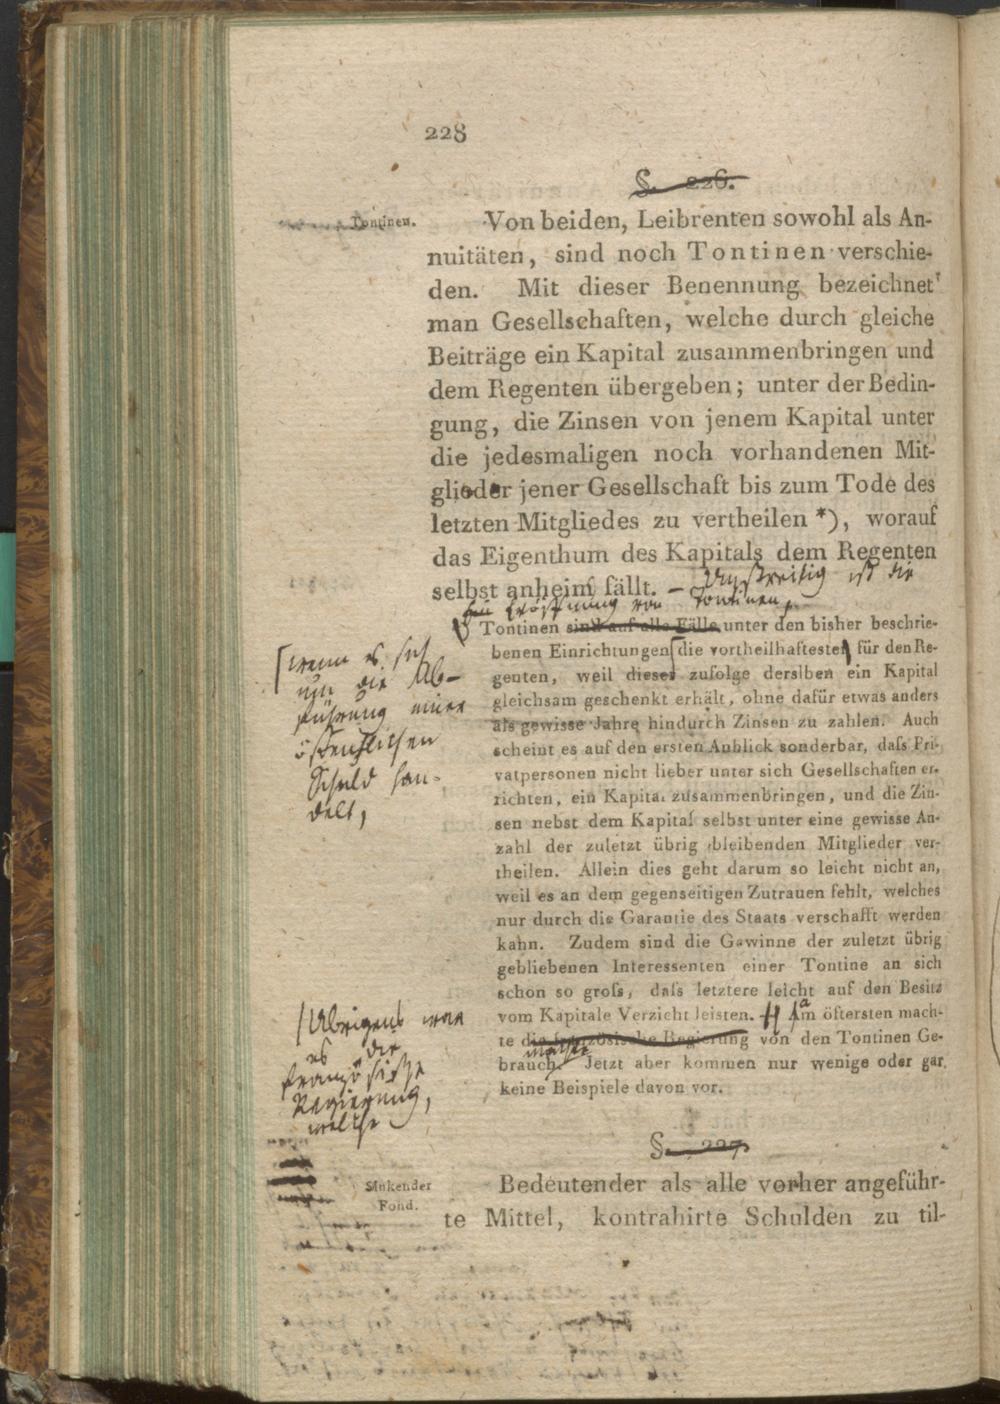 228
§. 226.
Tontinen.
Von beiden, Leibrenten sowohl als An-
nuitäten, sind noch Tontinen verschie-
den. Mit dieser Benennung bezeichnet
man Gesellschaften, welche durch gleiche
Beiträge ein Kapital zusammenbringen und
dem Regenten übergeben; unter der Bedin-
gung, die Zinsen von jenem Kapital unter
die jedesmaligen noch vorhandenen Mit-
glieder jener Gesellschaft bis zum Tode des
letzten Mitgliedes zu vertheilen *), worauf
das Eigenthum des Kapitals dem Regenten
selbst anheim fällt. — Unstreitig ist die
Eröffnung von Tontinen,
Tontinen sind auf alle Fälle unter den bisher beschrie-
benen Einrichtungen die vortheilhaftesten für den Re-
genten, weil dieser zufolge derselben ein Kapital
gleichsam geschenkt erhält, ohne dafür etwas anders
als gewisse Jahre hindurch Zinsen zu zahlen. Auch
scheint es auf den ersten Anblick sonderbar, daſs Pri-
vatpersonen nicht lieber unter sich Gesellschaften er-
richten, ein Kapital zusammenbringen, und die Zin-
sen nebst dem Kapital selbst unter eine gewisse An-
zahl der zuletzt übrig bleibenden Mitglieder ver-
theilen. Allein dies geht darum so leicht nicht an,
weil es an dem gegenseitigen Zutrauen fehlt, welches
nur durch die Garantie des Staats verschafft werden
kann. Zudem sind die Gewinne der zuletzt übrig
gebliebenen Interessenten einer Tontine an sich
schon so groſs, daſs letztere leicht auf den Besitz
vom Kapitale Verzicht leisten. Am öftersten mach-
te die französische Regierung von den Tontinen Ge-
machte
brauch. Jetzt aber kommen nur wenige oder gar
keine Beispiele davon vor.
wenn es sich
um die Ab-
führung einer
öffentlichen
Schuld han-
delt,
Übrigens war
es die
französische
Regierung,
welche
§. 227.
Sinkender
Fond.
Bedeutender als alle vorher angeführ-
te Mittel, kontrahirte Schulden zu til-